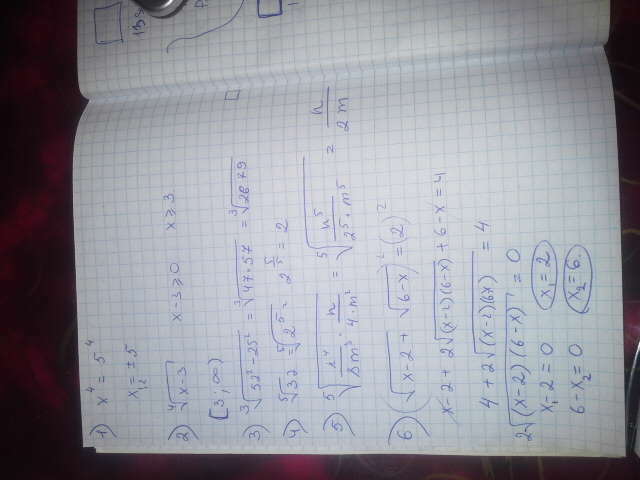 1) x⁴ = 5⁴
x₁,₂ = ±5
2) ⁴√(x-3) x-3⩾0 x⩾3
[3; ∞)
3) ³√(52²-25²) = ³√(47·57) = ³√2679
4) ⁵√32 = ⁵√(2⁵) = 2^(5/5) = 2
5) ⁵√(n⁴/(8m³) · n/(4·m²)) = ⁵√(n⁵/(2⁵·m⁵)) = n/(2m)
6) (√(x-2) + √(6-x))² = (2)²
x-2+2√((x-2)(6-x))+6-x=4
4+2√((x-2)(6x)) = 4
2√((x-2)(6-x)) = 0
x₁-2=0 x₁=2
6-x₂=0 x₂=6.